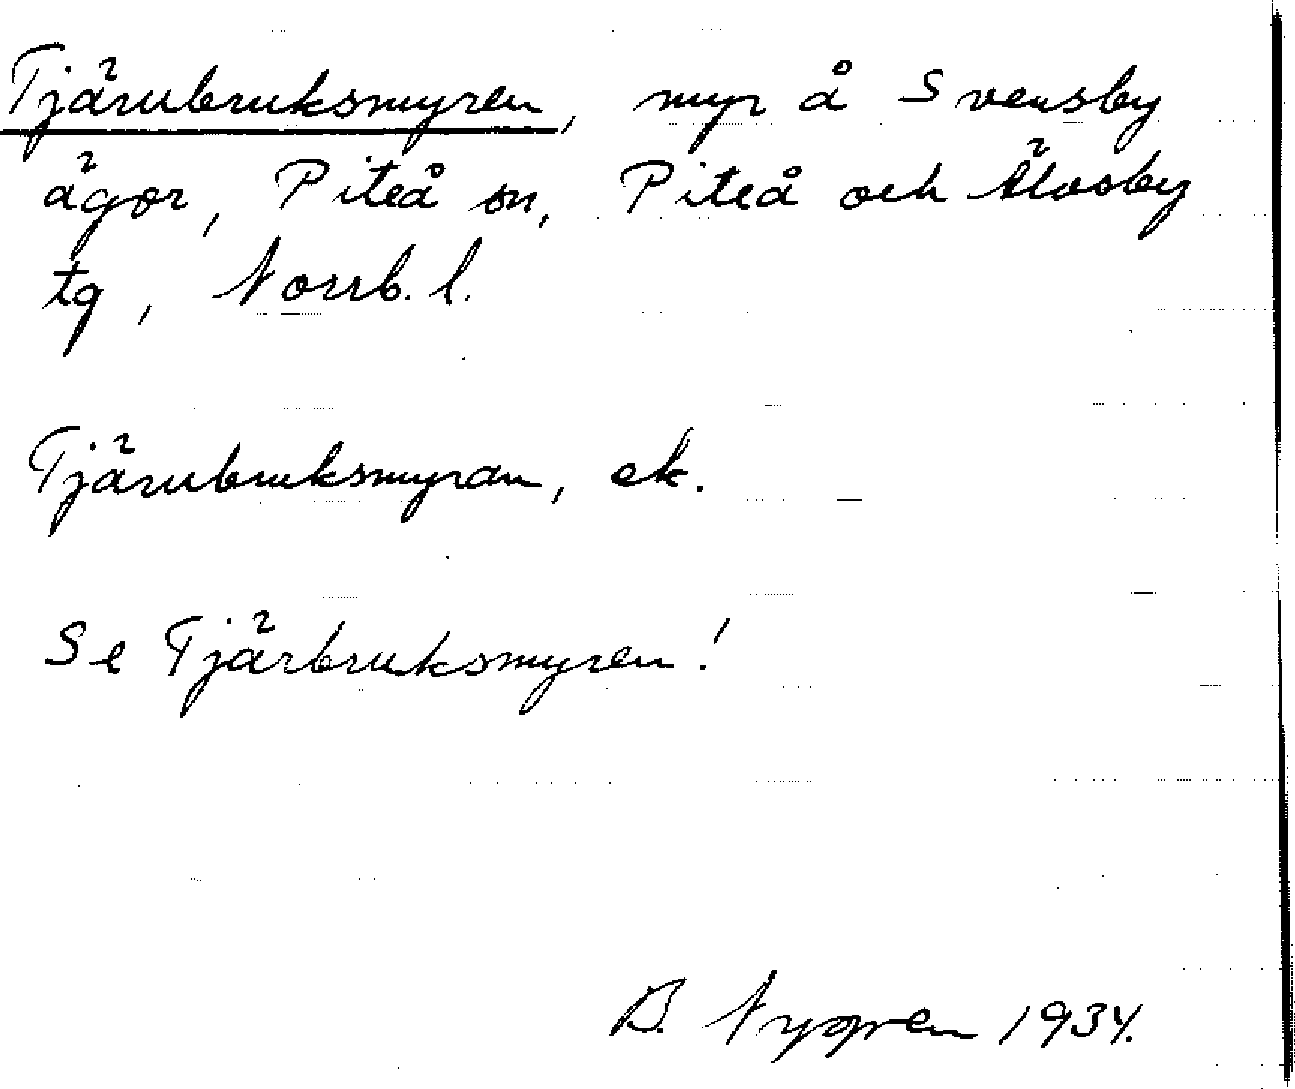 Tjärubruksmyren, myr å Svensby
ägor, Piteå sn, Piteå och Älvsby
tg, Norrb. l.
Tjärubruksmyran, ek.
Se Tjärbruksmyren!
B. Nygren 1934.